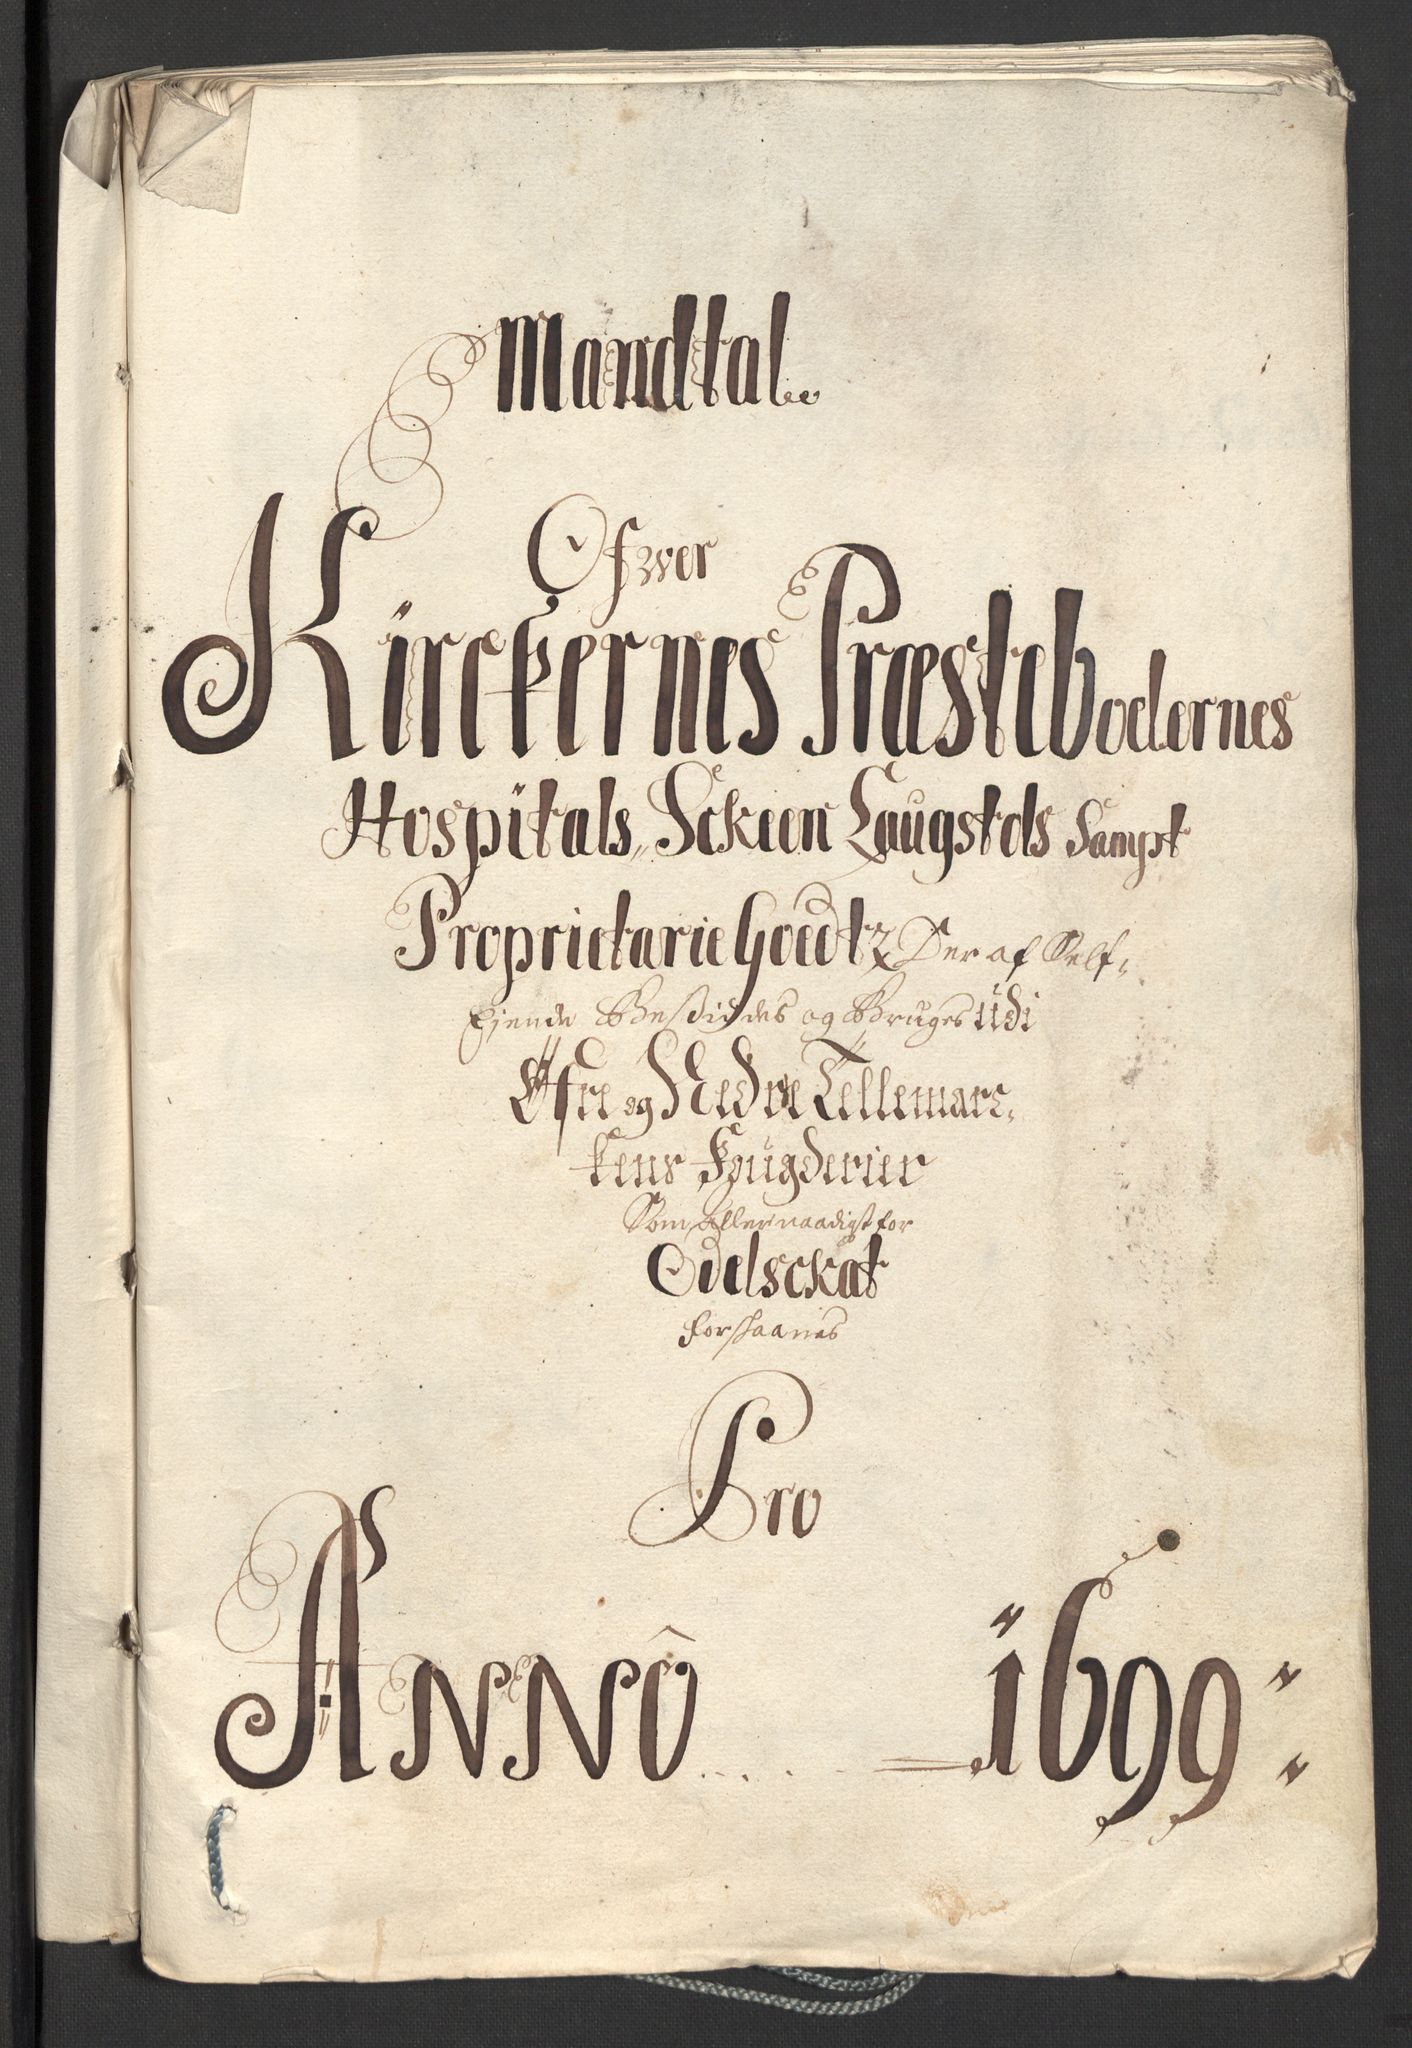 Mandtal
Ofwer
Kirckernes Præstebodernes
Hospitals, Sckien Laugstols Sampt
Proprietarie Goedtz Der af Self,
Ejende Besiddes og Bruges udi
Øfre og Nedre Tellemarc,
kens Fougderier
Som Allernaadigst for
Odelsckat
forskaanes
Pro
Annô .... 1699